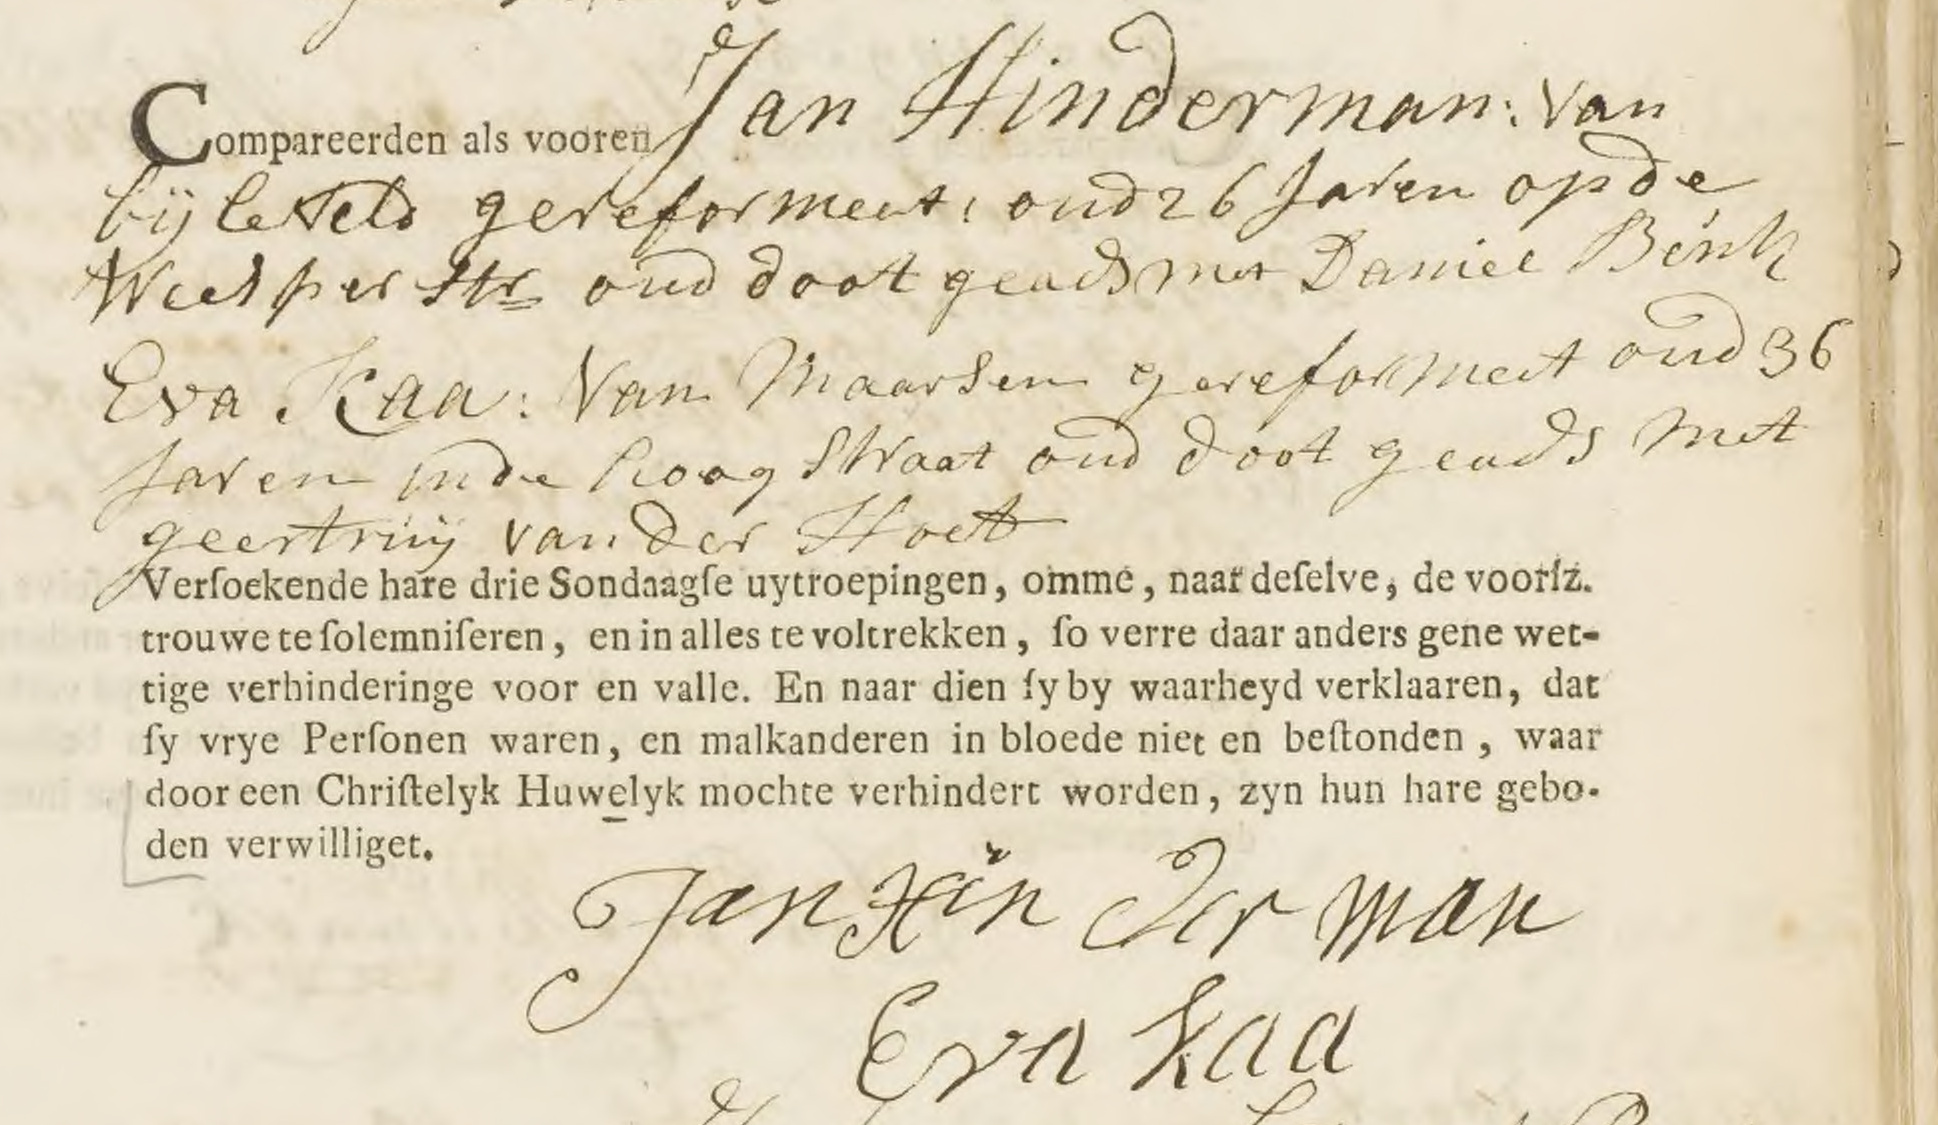 Compareerden als vooren Jan Hinderman: van
bijleveld gereformeert, oud 26 Jaren op de
Weesper Str oud doot geads met Daniel Benk
Eva Kaa: Van Maarsen gereformeert oud 36
Jaren in de hoog Straat oud doot geads met
geertruij van der Hoet
Verſoekende hare drie Sondaagſe uytroepingen, omme, naar deſelve, de voorſz.
trouwe te ſolemniſeren, en in alles te voltrekken, ſo verre daar anders gene wet-
tige verhinderinge voor en valle. En naar dien ſy by waarheyd verklaaren, dat
ſy vrye Perſonen waren, en malkanderen in bloede niet en beſtonden, waar
door een Chriſtelyk Huwelyk mochte verhindert worden, zyn hun hare gebo-
den verwilliget.
Jan Hin der man
Eva Kaa